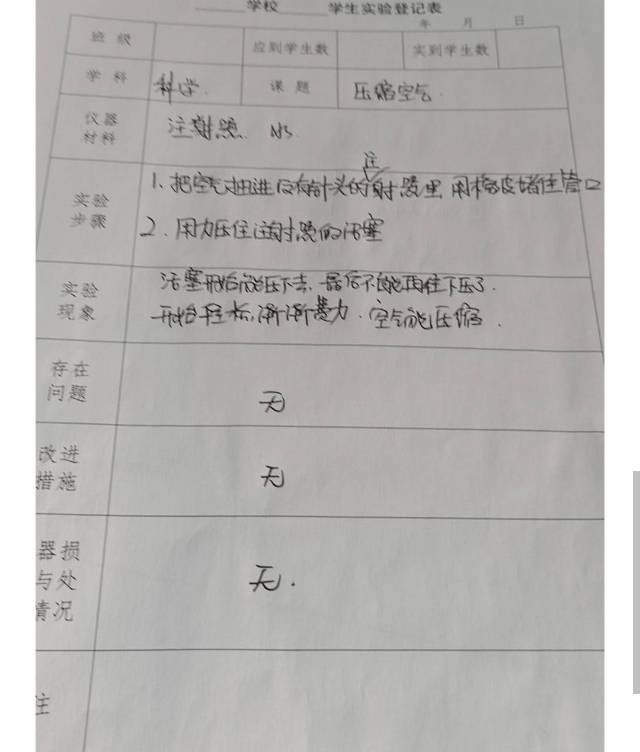 学校 学生实验登记表
年 月 日
班级 应到学生数 实到学生数
学科 科学. 课题 压缩空气.
仪器
材料
注射器.
实验
步骤
1. 把空气抽进没有针头的注射器里 用橡皮堵住管口
2. 用力压住注射器的活塞
实验
现象
活塞开始能压下去, 最后不能再往下压了.
开始轻松, 渐渐费力. 空气能压缩.
存在
问题
无
改进
措施
无
器损
与处
情况
无.
注